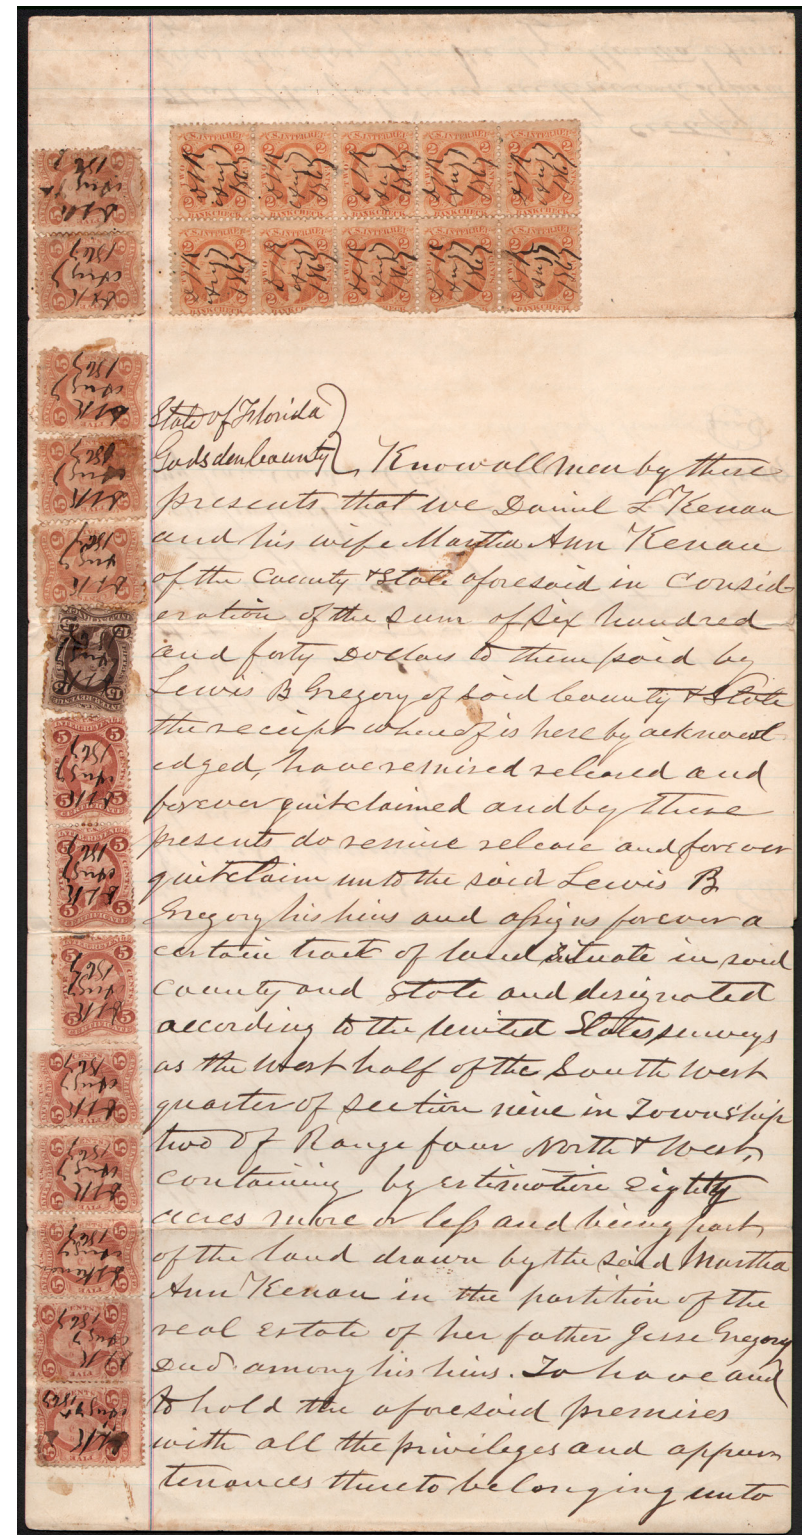 State of Florida
Gadsden County Know all men by these
presents that we Daniel L Kenan
and his wife Martha Ann Kenan
of the County & State aforesaid in consid-
eration of the sum of six hundred
and forty Dollars to them paid by
Lewis B Gregory of said County & State
the receipt whereof is hereby acknowl
edged, have remised released and
forever quitclaimed and by these
presents do remise release and forever
quitclaim unto the said Lewis B
Gregory his heirs and assigns forever a
certain tract of land situate in said
County and State and designated
according to the United States surveys
as the West half of the South West
quarter of section nine in Township
two of Range four North & West,
containing by estimation Eighty
acres more or less and being part
of the land drawn by the said Martha
Ann Kenan in the partition of the
real Estate of her father Jesse Gregory
Decd among his heirs. To have and
to hold the aforesaid premises
with all the privileges and appur
tenances thereto belonging unto